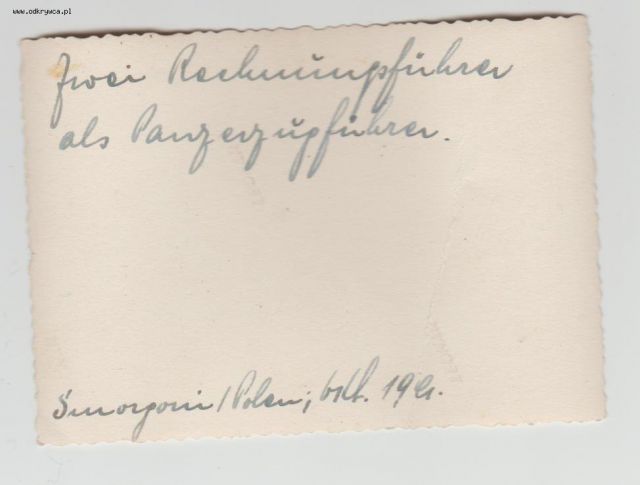 www.odkrywca.pl
Zwei Rechnungsführer
als Panzerzugführer.
Smorgoni / Polen; Okt. 1941.